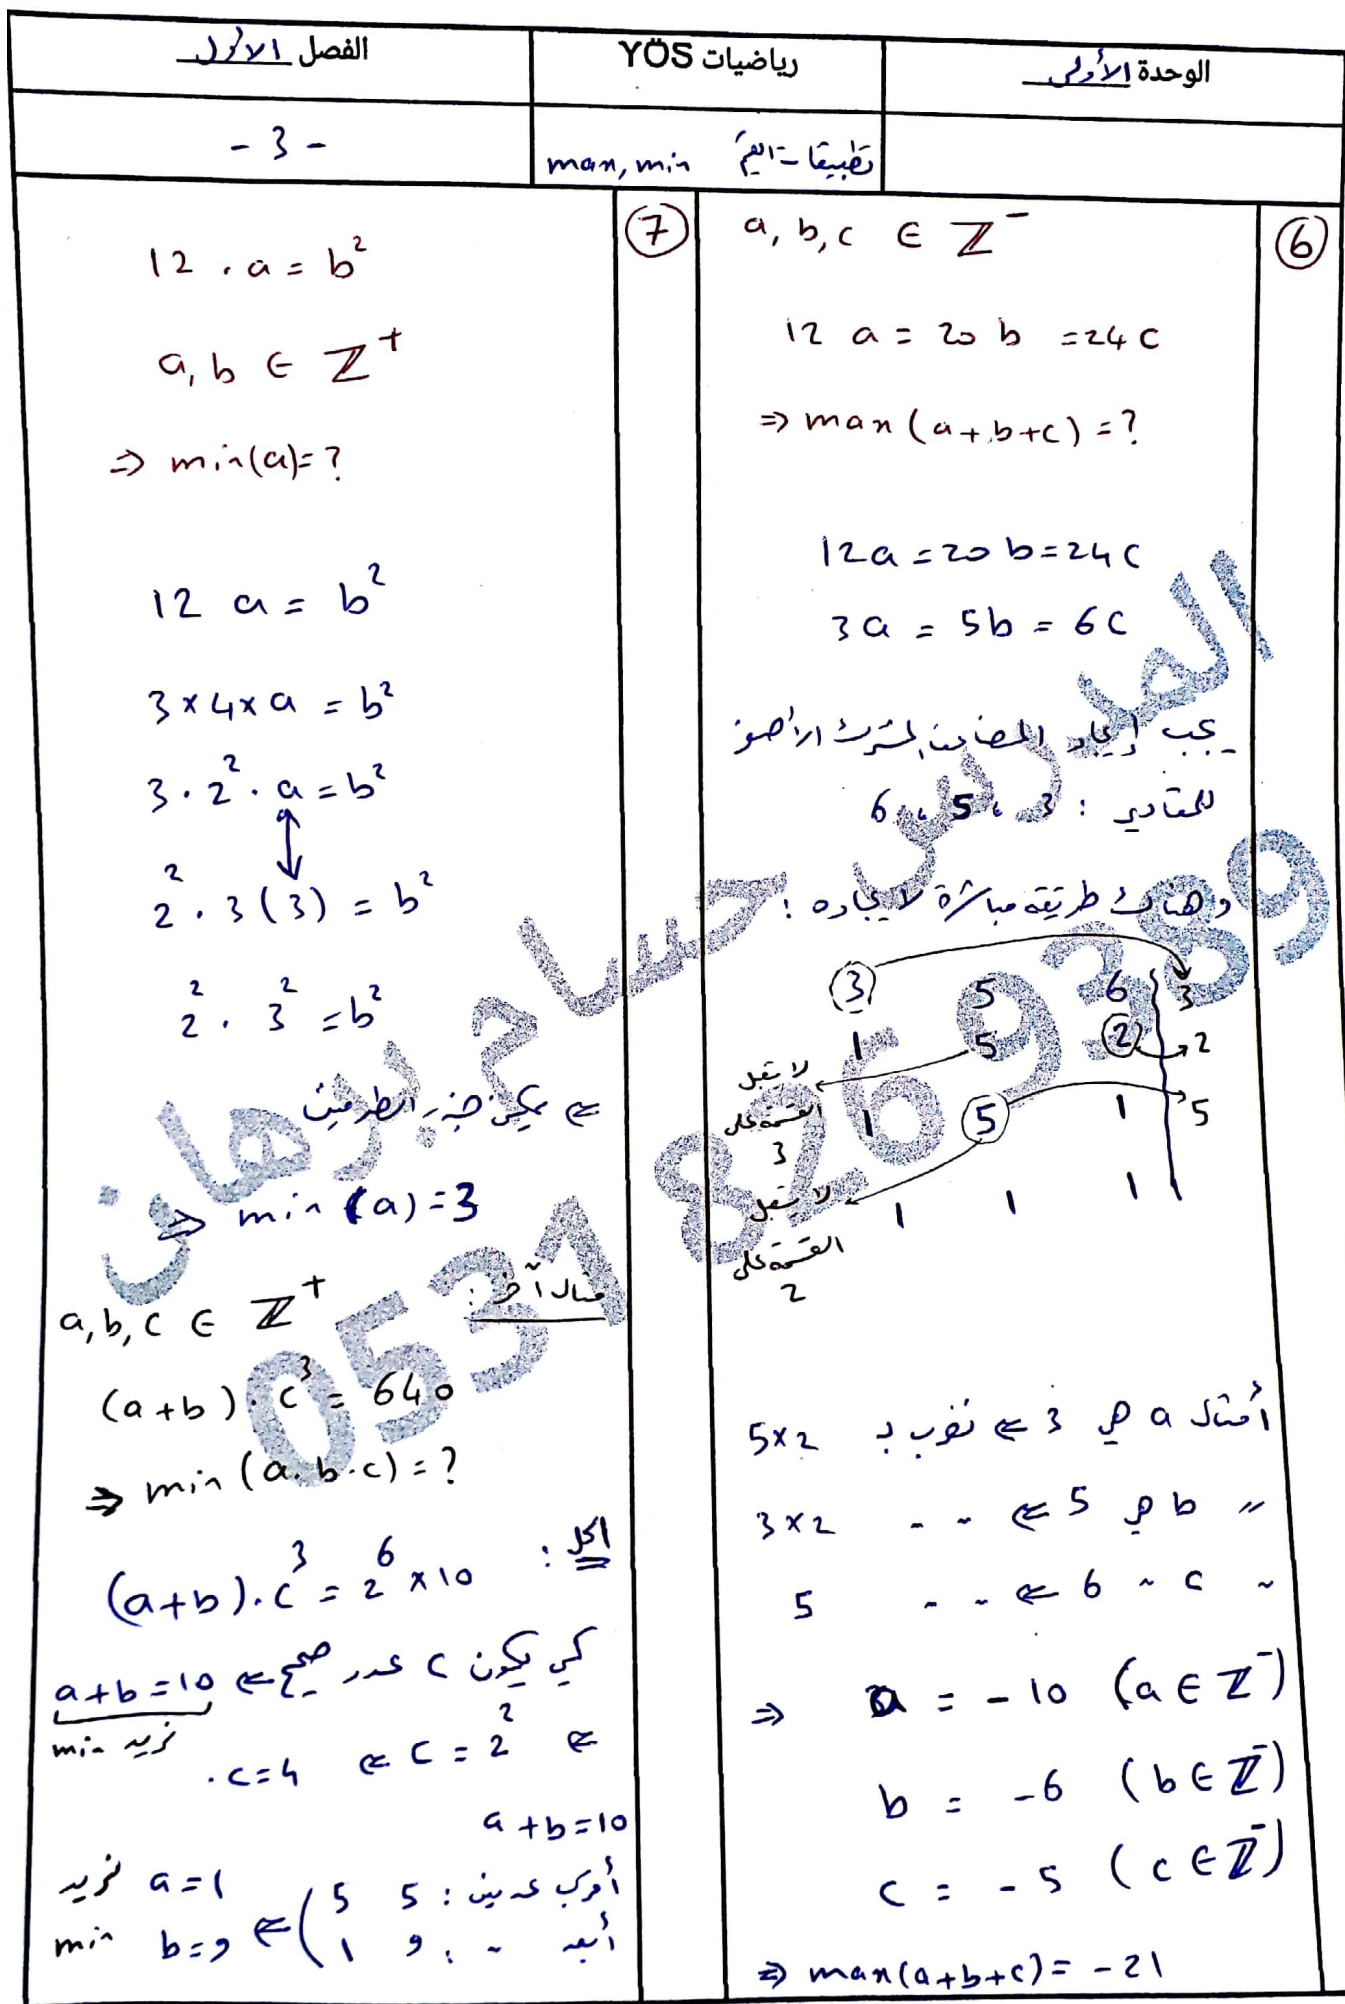 الوحدة الأولى
رياضيات YÖS
الفصل الاول
تطبيقات القيم max, min
- 3 -
6
a, b, c ∈ Z⁻
12 a = 20 b = 24 c
⇒ max (a+b+c) = ?
12a = 20 b = 24 c
3a = 5b = 6c
يجب إيجاد المضاعف المشترك الأصغر
للمقادير : 3 ، 5 ، 6
وهناك طريقة مباشرة لايجاده :
3 5 6 | 3
1 5 2 | 2
لا يقبل القسمة على 3
1 5 1 | 5
لا يقبل القسمة على 2
1 1 1
أمثال a هي 3 ⇐ نضرب بـ 5×2
〃 b هي 5 ⇐ 〃 〃 3×2
〃 c 〃 6 ⇐ 〃 〃 5
⇒ a = -10 (a ∈ Z⁻)
b = -6 (b ∈ Z⁻)
c = -5 (c ∈ Z⁻)
⇒ max(a+b+c) = -21
7
12 . a = b²
a, b ∈ Z⁺
⇒ min(a) = ?
12 a = b²
3 × 4 × a = b²
3 . 2² . a = b²
2² . 3 (3) = b²
2² . 3² = b²
⇐ يمكن جذر الطرفين
⇒ min (a) = 3
مثال آخر :
a, b, c ∈ Z⁺
(a+b) . c³ = 640
⇒ min (a.b.c) = ?
الحل :
(a+b) . c³ = 2⁶ × 10
كي يكون c عدد صحيح ⇐ a+b=10
نريد min
⇐ c = 2² ⇐ c=4 .
a+b=10
أقرب عددين : 5 5
أبعد 〃 : 9 و 1
⇐ a=1 b=9 نريد min
المدرس حسام برهان
0531 826 93 89